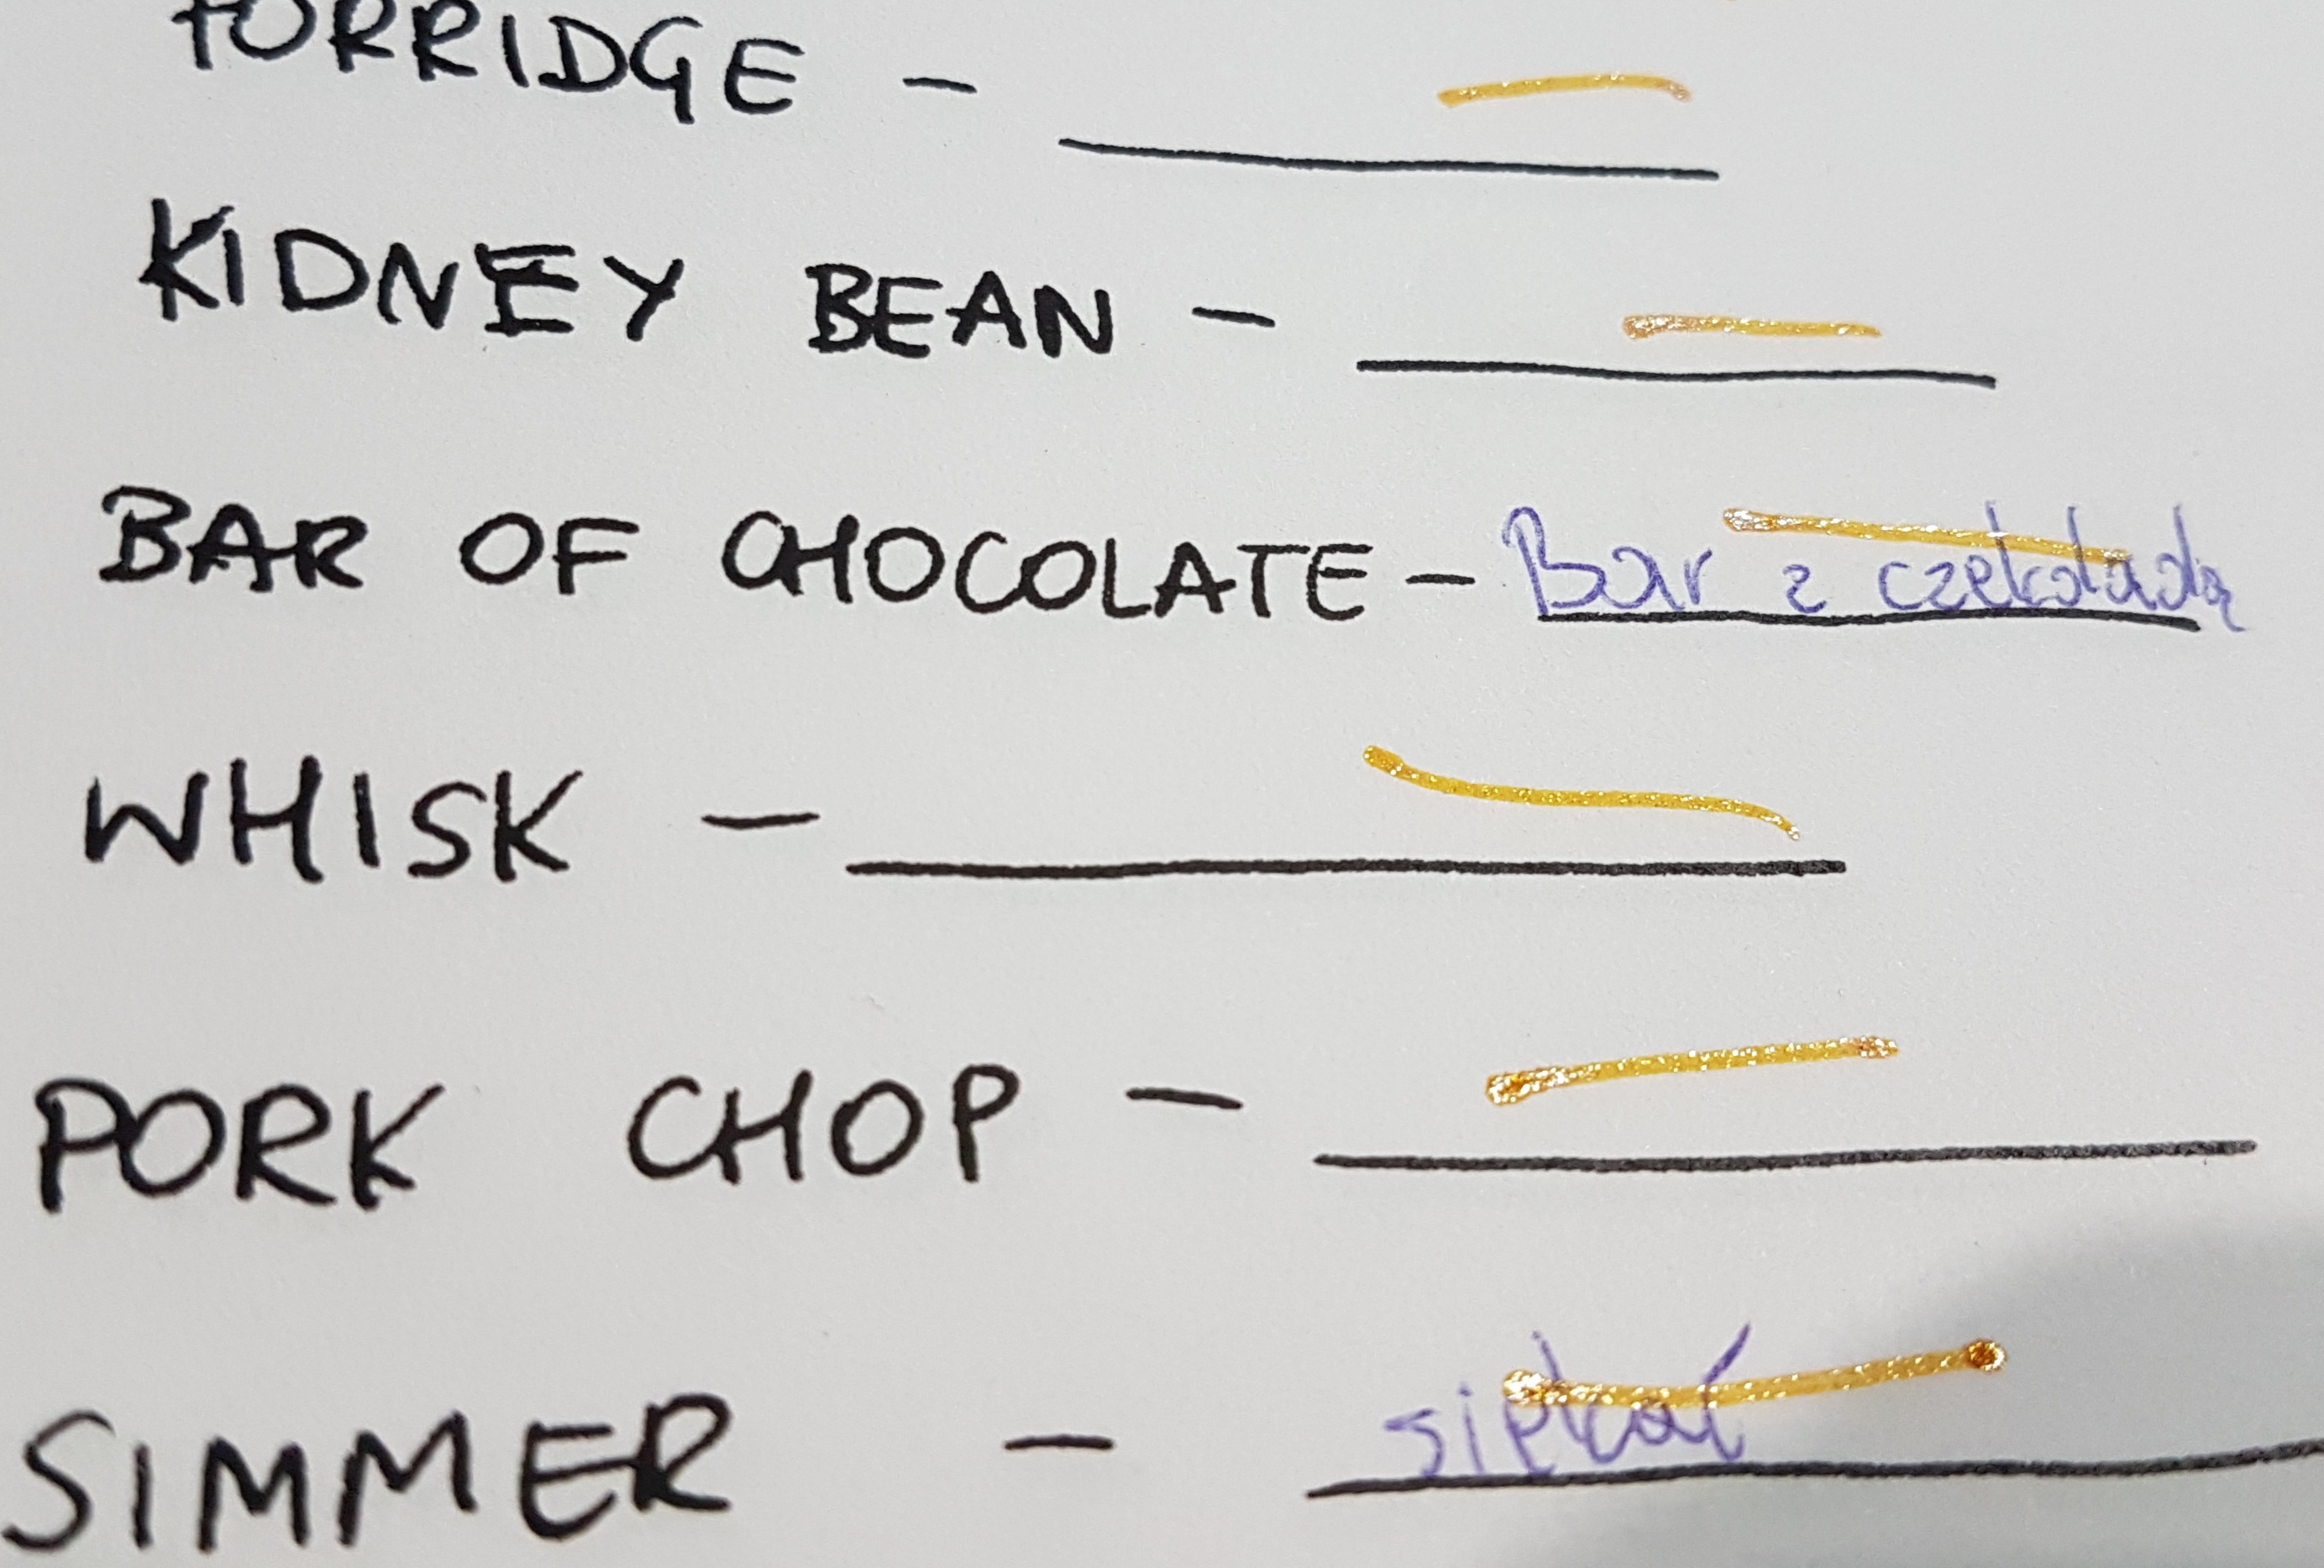 PORRIDGE -
KIDNEY BEAN -
BAR OF CHOCOLATE - Bar z czekoladą
WHISK -
PORK CHOP -
SIMMER - siekać